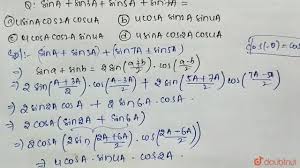 Q: SinA + Sin3A + Sin5A + Sin7A =
(a) SinA Cos2A Cos4A (b) 4 CosA Sin2A Sin4A
(c) 4 CosA Cos2A Sin4A (d) 4 SinA Cos2A Cos4A
(SinA + Sin3A) + (Sin7A + Sin5A)
Sina + Sinb = 2 Sin(a+b/2) . Cos(a-b/2)
⇒ 2 Sin(A+3A/2) . Cos(A-3A/2) + 2 Sin(5A+7A/2) Cos(7A-5A/2)
⇒ 2 Sin2A CosA + 2 Sin6A . CosA .
⇒ 2 CosA (Sin2A + Sin6A)
⇒ 2 CosA (2 Sin(2A+6A/2) . Cos(2A-6A/2)
⇒ 4 CosA . Sin4A . Cos2A .
doubtnut